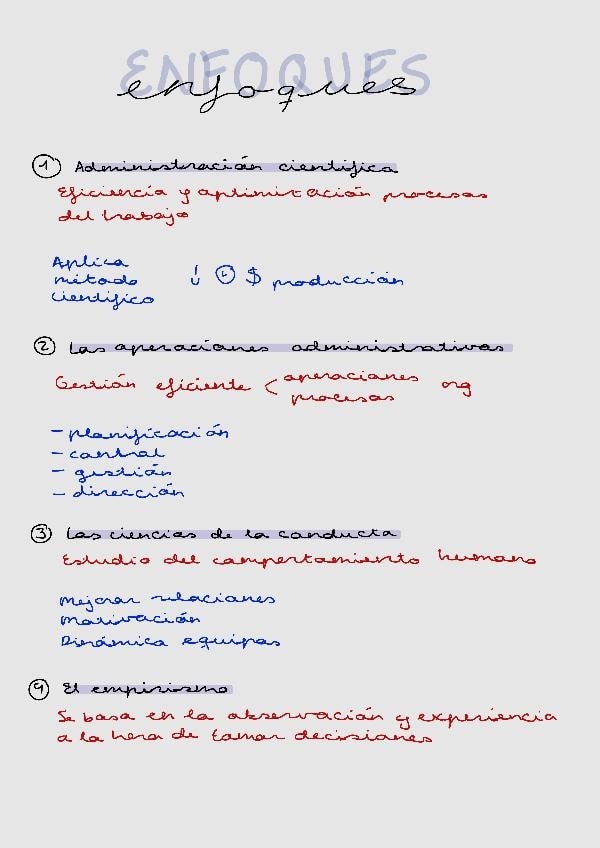 ENFOQUES
enfoques
1 Administración científica
Eficiencia y optimización procesos
del trabajo
Aplica
método
científico
↓ $ producción
2 Las operaciones administrativas
Gestión eficiente < operaciones org
procesos
- planificación
- control
- gestión
- dirección
3 Las ciencias de la conducta
Estudio del comportamiento humano
Mejorar relaciones
Motivación
Dinámica equipos
4 El empirismo
Se basa en la observación y experiencia
a la hora de tomar decisiones